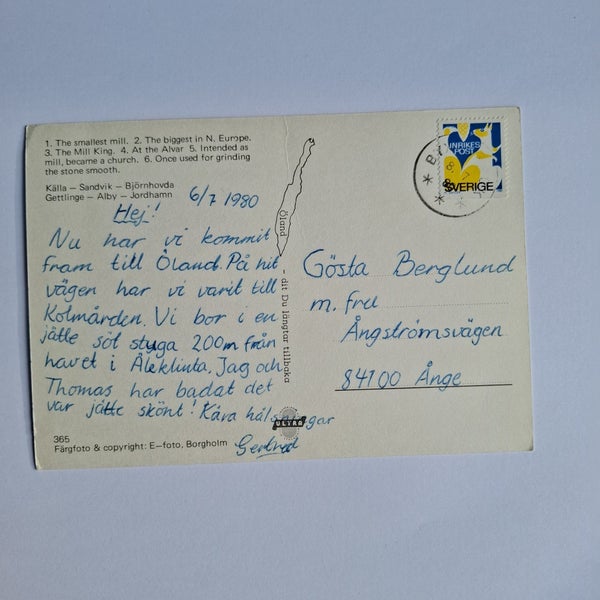 1. The smallest mill. 2. The biggest in N. Europe.
3. The Mill King. 4. At the Alvar 5. Intended as
mill, became a church. 6. Once used for grinding
the stone smooth.
Källa – Sandvik – Björnhovda
Gettlinge – Alby – Jordhamn
6/7 1980
Hej!
Nu har vi kommit
fram till Öland. På hit
vägen har vi varit till
Kolmården. Vi bor i en
jätte söt stuga 200m från
havet i Äleklinta. Jag och
Thomas har badat det
var jätte skönt! Kära hälsningar
Gertrud
365
Färgfoto & copyright: E–foto, Borgholm
Öland
- dit Du längtar tillbaka
ULTRA
INRIKES
POST
SVERIGE
Gösta Berglund
m. fru
Ångströmsvägen
84100 Ånge